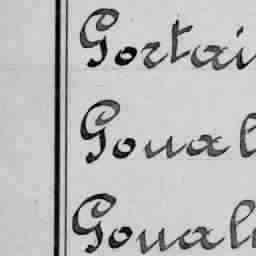 Gortai
Goual
Goual